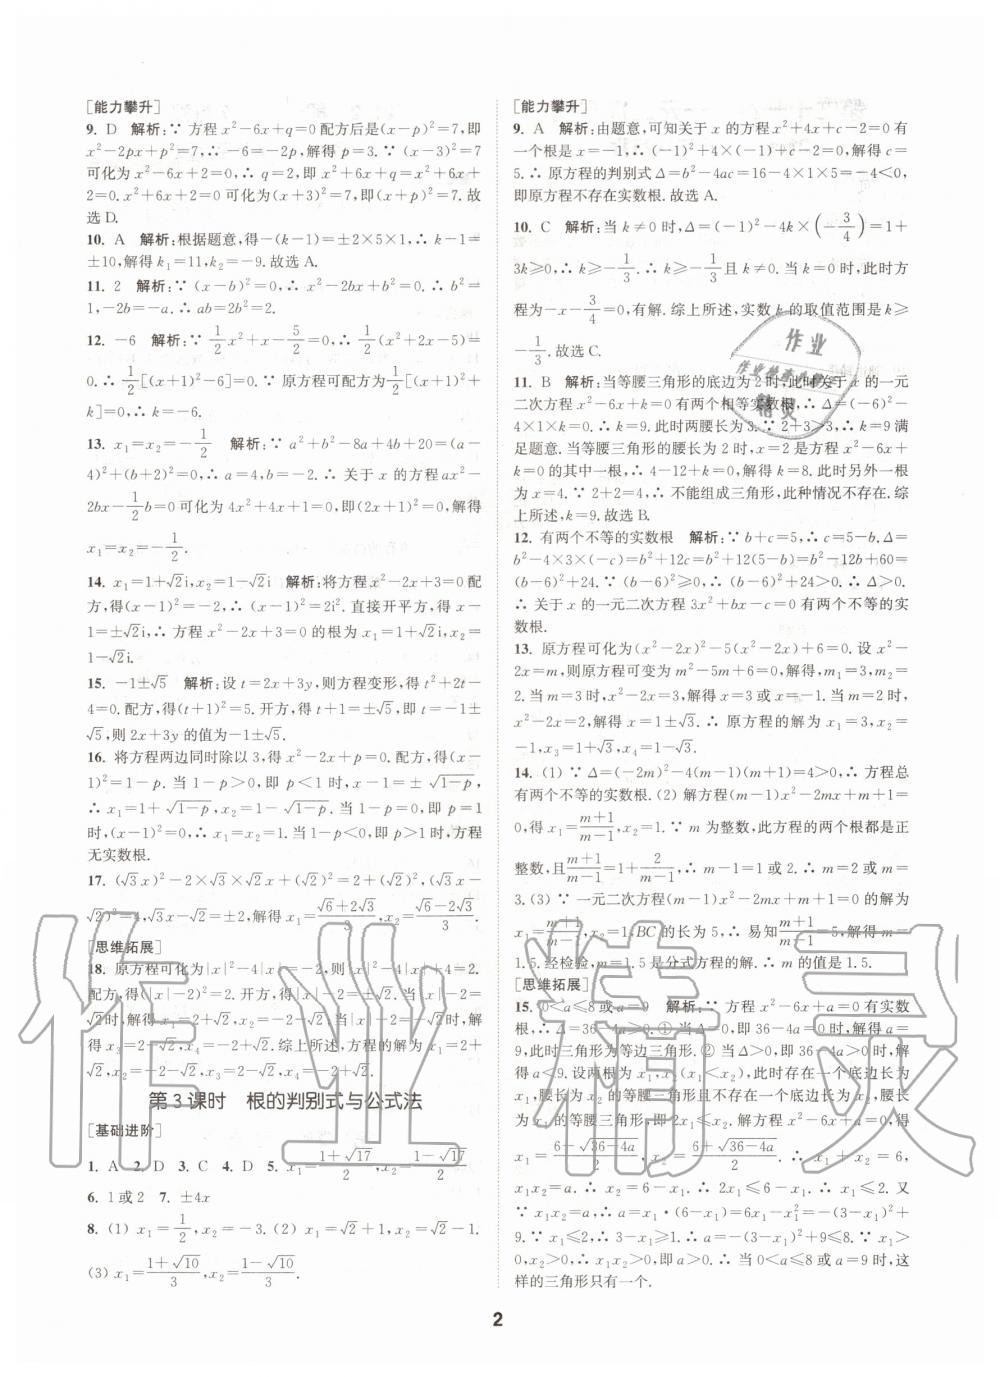 [能力攀升]
9. D 解析:∵ 方程 x²-6x+q=0 配方后是(x-p)²=7,即
x²-2px+p²=7,∴ -6=-2p,解得 p=3.∵ (x-3)²=7
可化为 x²-6x+2=0,∴ q=2,即 x²+6x+q=x²+6x+2=0.
x²+6x+2=0 可化为(x+3)²=7,即(x+p)²=7.故
选 D.
10. A 解析:根据题意,得-(k-1)=±2×5×1,∴ k-1=
±10,解得 k₁=11,k₂=-9.故选 A.
11. 2 解析:∵ (x-b)²=0,∴ x²-2bx+b²=0.∴ b²=
1,-2b=-a.∴ ab=2b²=2.
12. -6 解析:∵ 1/2x²+x-5/2=0,∴ 1/2(x²+2x-5)=
0.∴ 1/2[(x+1)²-6]=0.∵ 原方程可配方为 1/2[(x+1)²+
k]=0,∴ k=-6.
13. x₁=x₂=-1/2 解析:∵ a²+b²-8a+4b+20=(a-
4)²+(b+2)²=0,∴ a=4,b=-2.∴ 关于 x 的方程ax²-
2bx-1/2b=0可化为 4x²+4x+1=0,即(2x+1)²=0,解得
x₁=x₂=-1/2.
14. x₁=1+√2i,x₂=1-√2i 解析:将方程 x²-2x+3=0 配
方,得(x-1)²=-2,∴ (x-1)²=2i². 直接开平方,得 x-
1=±√2i,∴ 方程 x²-2x+3=0 的根为 x₁=1+√2i,x₂=
1-√2i.
15. -1±√5 解析:设 t=2x+3y,则方程变形,得t²+2t-
4=0. 配方,得(t+1)²=5. 开方,得 t+1=±√5,即 t=-1±
√5,则 2x+3y 的值为-1±√5.
16. 将方程两边同时除以 3,得 x²-2x+p=0. 配方,得(x-
1)²=1-p. 当 1-p>0,即 p<1 时,x-1=±√(1-p),
∴ x₁=1+√(1-p),x₂=1-√(1-p). 当 1-p=0,即 p=1
时,(x-1)²=0,∴ x₁=x₂=1. 当1-p<0,即 p>1 时,方程
无实数根.
17. (√3x)²-2×√3×√2x+(√2)²=2+(√2)²,(√3x-
√2)²=4,√3x-√2=±2,解得 x₁=(√6+2√3)/3,x₂=(√6-2√3)/3.
[思维拓展]
18. 原方程可化为|x|²-4|x|=-2. 则|x|²-4|x|+4=2.
配方,得(|x|-2)²=2. 开方,得|x|-2=±√2,当|x|=2+
√2时,解得 x₁=2+√2,x₂=-2-√2;当|x|=2-√2时,解
得 x₃=2-√2,x₄=-2+√2.综上所述,方程的解为 x₁=2+
√2,x₂=-2-√2,x₃=2-√2,x₄=-2+√2.
第 3 课时 根的判别式与公式法
[基础进阶]
1. A 2. D 3. C 4. D 5. x₁=(1+√17)/2,x₂=(1-√17)/2
6. 1或2 7. ±4x
8. (1) x₁=1/2,x₂=-3. (2) x₁=√2+1,x₂=√2-1.
(3) x₁=(1+√10)/3,x₂=(1-√10)/3.
[能力攀升]
9. A 解析:由题意,可知关于 x 的方程x²+4x+c-2=0有
一个根是 x=-1,∴ (-1)²+4×(-1)+c-2=0,解得 c=
5.∴ 原方程的判别式 Δ=b²-4ac=16-4×1×5=-4<0,
即原方程不存在实数根.故选 A.
10. C 解析:当 k≠0 时,Δ=(-1)²-4k×(-3/4)=1+
3k≥0,∴ k≥-1/3.∴ k≥-1/3且 k≠0. 当 k=0 时,此时方
程为-x-3/4=0,有解. 综上所述,实数 k 的取值范围是 k≥
-1/3.故选 C.
11. B 解析:当等腰三角形的底边为 2 时,此时关于 x 的一元
二次方程 x²-6x+k=0 有两个相等实数根,∴ Δ=(-6)²-
4×1×k=0.∴ k=9. 此时两腰长为 3.∵ 2+3>3,∴ k=9 满
足题意. 当等腰三角形的腰长为 2 时,x=2 是方程 x²-6x+
k=0 的其中一根,∴ 4-12+k=0,解得 k=8. 此时另外一根
为 x=4.∵ 2+2=4,∴ 不能组成三角形,此种情况不存在. 综
上所述,k=9.故选 B.
12. 有两个不等的实数根 解析:∵ b+c=5,∴ c=5-b.Δ=
b²-4×3×(-c)=b²+12c=b²+12(5-b)=b²-12b+60=
(b-6)²+24.∵ (b-6)²≥0,∴ (b-6)²+24>0.∴ Δ>0.
∴ 关于 x 的一元二次方程 3x²+bx-c=0 有两个不等的实
数根.
13. 原方程可化为(x²-2x)²-5(x²-2x)+6=0. 设 x²-
2x=m,则原方程可变为 m²-5m+6=0,解得,m₁=3,m₂=
2. 当 m=3 时,x²-2x=3,解得 x=3 或 x=-1. 当 m=2 时,
x²-2x=2,解得 x=1±√3.∴ 原方程的解为 x₁=3,x₂=
-1,x₃=1+√3,x₄=1-√3.
14. (1) ∵ Δ=(-2m)²-4(m-1)(m+1)=4>0,∴ 方程总
有两个不等的实数根.(2) 解方程(m-1)x²-2mx+m+1=
0,得 x₁=(m+1)/(m-1),x₂=1.∵ m 为整数,此方程的两个根都是正
整数,且(m+1)/(m-1)=1+2/(m-1),∴ m-1=1或2.∴ m=2或 m=
3.(3) ∵ 一元二次方程(m-1)x²-2mx+m+1=0的解为
x₁=(m+1)/(m-1),x₂=1,BC的长为 5,∴ 易知(m+1)/(m-1)=5,解得m=
1.5. 经检验,m=1.5 是分式方程的解.∴ m 的值是 1.5.
[思维拓展]
15. 0<a≤8或 a=9 解析:∵ 方程 x²-6x+a=0 有实数
根,∴ Δ=36-4a≥0.① 当 Δ=0,即36-4a=0时,解得 a=
9,此时三角形为等边三角形.② 当 Δ>0,即 36-4a>0 时,解
得 a<9. 设两根为 x₁,x₂(x₁<x₂). 当存在一个底边长为
x₂,腰长为 x₁ 的三角形时,一定存在一个底边长为 x₁,腰长
为 x₂ 的三角形,则只需 x₁+x₁≤x₂,三角形就只有一个.
x₁=(6-√(36-4a))/2,x₂=(6+√(36-4a))/2.∴ x₁+x₂=6,
x₁x₂=a.∴ x₂=6-x₁.∴ 2x₁≤6-x₁.∴ x₁≤2. 又
∵ x₁x₂=a,∴ a=x₁·(6-x₁)=6x₁-x₁²=-(3-x₁)²+
9.∵ x₁≤2,∴ 3-x₁≥1.∴ a=-(3-x₁)²+9≤8.∵ x₁>
0,x₂>0,∴ x₁x₂>0,即 a>0.∴ 当 0<a≤8 或 a=9 时,这
样的三角形只有一个.
2
作业
精灵
作业精灵